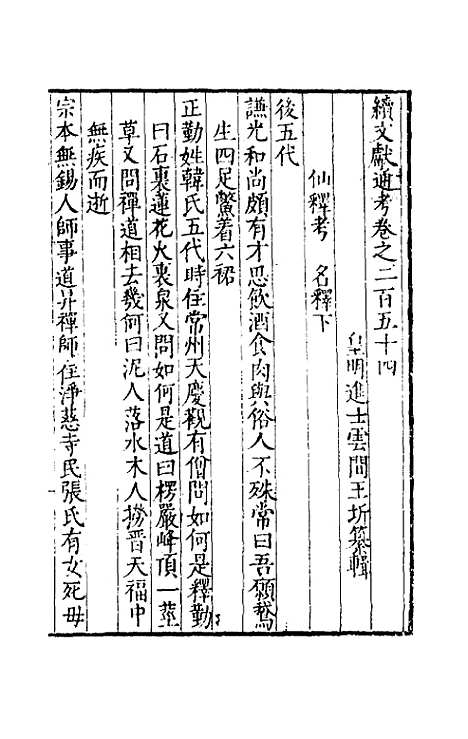 續文獻通考卷之二百五十四
皇明進士雲間王圻纂輯
仙釋考 名釋下
後五代
謙光和尚頗有才思飲酒食肉與俗人不殊常曰吾願鵞
生四足鱉着六裙
正勤姓韓氏五代時住常州天慶觀有僧問如何是釋勤
曰石裏蓮花火裏泉又問如何是道曰楞嚴峰頂一莖
草又問禪道相去幾何曰泥人落水木人撈晉天福中
無疾而逝
宗本無錫人師事道升禪師住淨慈寺民張氏有女死母